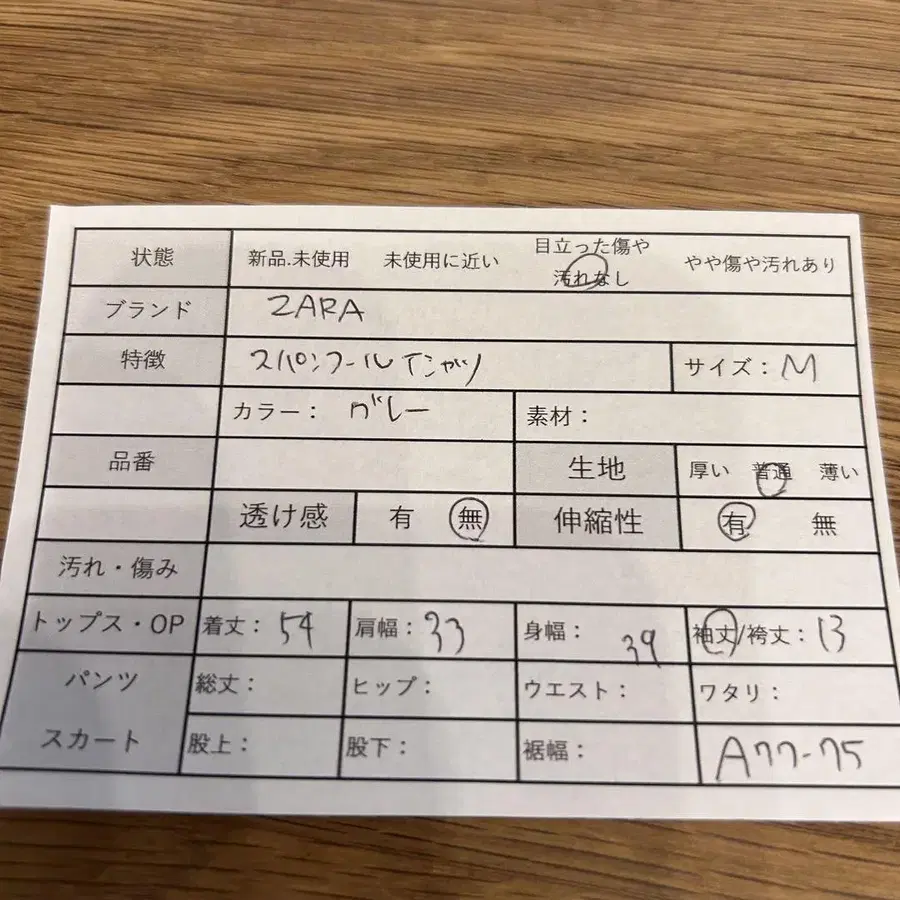 状態 新品.未使用 未使用に近い 目立った傷や汚れなし やや傷や汚れあり
ブランド ZARA
特徴 スパンコールTシャツ サイズ：M
カラー：グレー 素材：
品番 生地 厚い 普通 薄い
透け感 有 無 伸縮性 有 無
汚れ・傷み
トップス・OP 着丈：54 肩幅：33 身幅：39 袖丈/裄丈：13
パンツ 総丈： ヒップ： ウエスト： ワタリ：
スカート 股上： 股下： 裾幅： A77-75